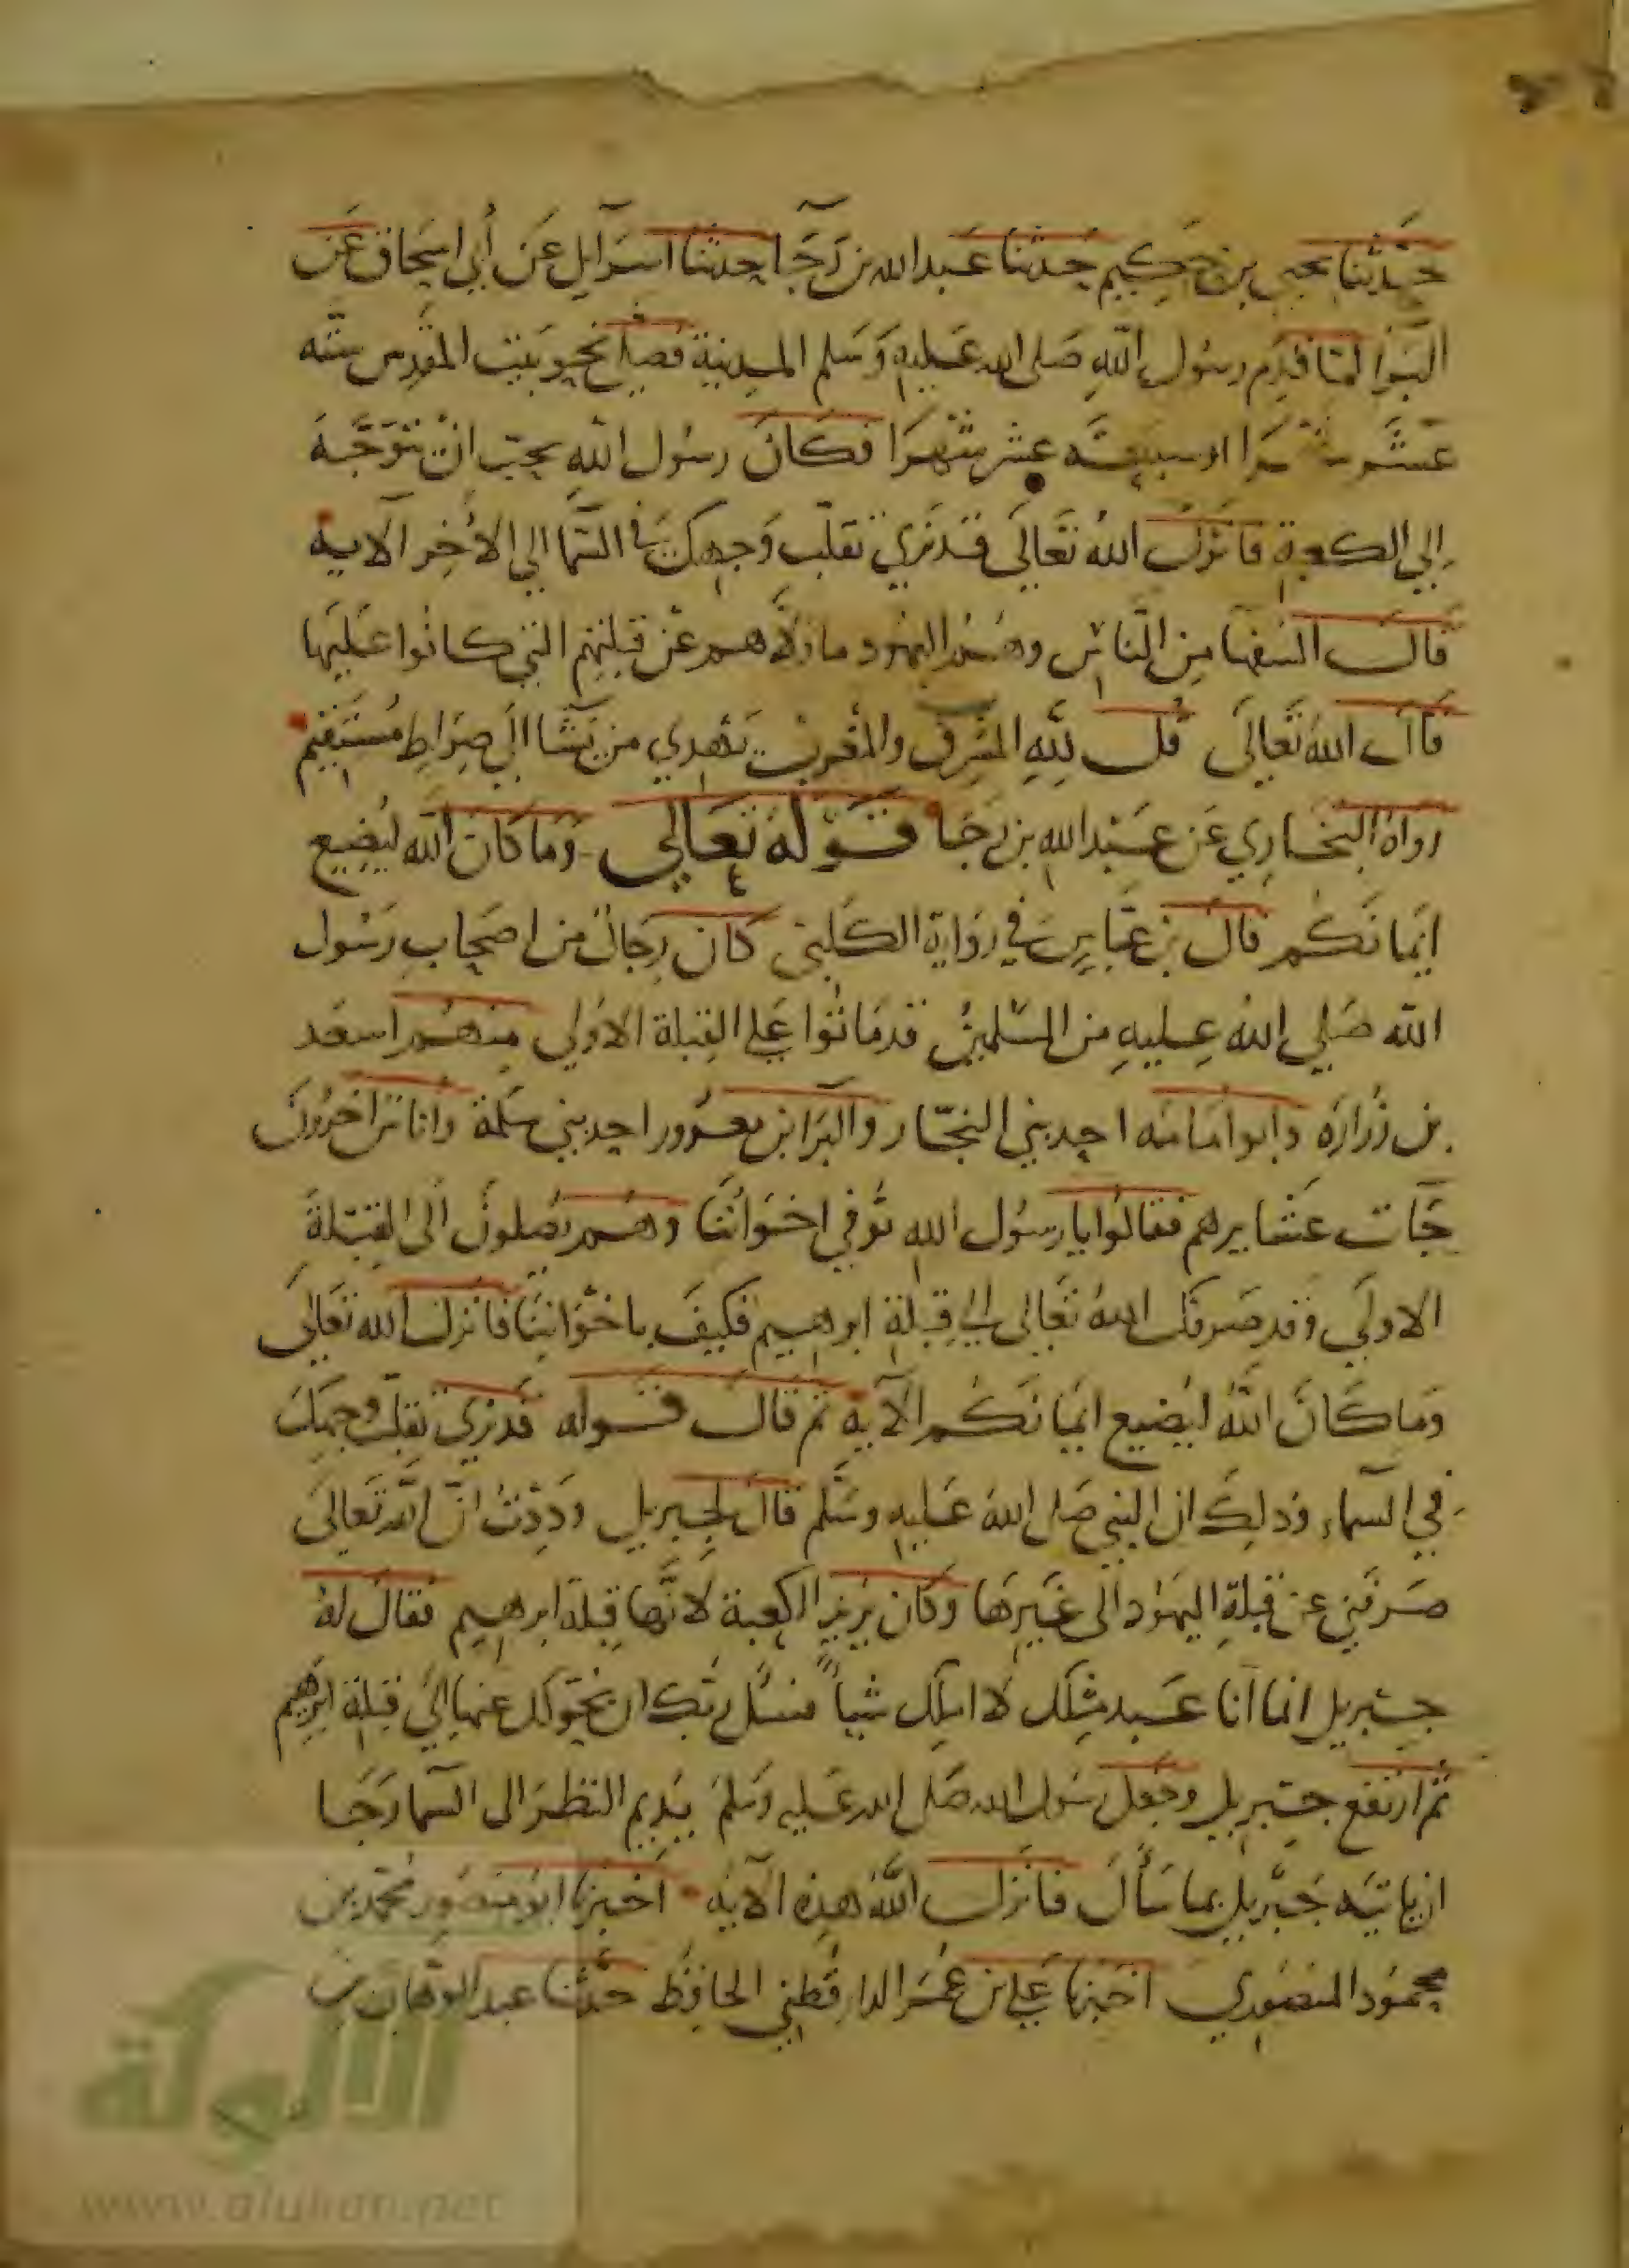 حَدَّثَنا يحيى بن حَكِيم حَدثنا عَبد الله بن رَجَآ حدثنا اسرَآيل عَن أبي اسحاق عَن
البَرا لمّا قدِم رسُول اللهِ صَلى الله عَليهِ وَسَلم المدِينة فصَلى نحو بَيت المقدس ستة
عَشَر شهرا او سبعَة عشر شَهرَا فكَانَ رسُول اللهِ يحبّ انْ يتوَجَّهَ
إلي الكعبةِ فانزَلَ اللهُ تَعَالَى قد نَرَي تَقلّب وَجهِكَ في السّمَا الي الاخِر الآية
قالَ السفهَا مِن النَّاسِ وهُمُ اليهُود ما وَلَّاهم عَن قبلتهم التي كانُوا عَليهَا
قَالَ اللهُ تَعَالَى قُل لِلّهِ المشرق والمغرب يَهدِي من يَشَا الَى صِرَاطِ مُستَقيم
رواهُ البخَارِي عَن عَبْد الله بن رجَا قَوله تعَالي وَمَا كَانَ اللّه ليُضِيع
ايمَانكُم قال بن عبَّاسٍ في رِوَايَة الكَلبي كان رِجَالٌ من اصحَابِ رَسُول
الله صَلي اللهُ عليهِ من المسْلِمينَ قد مَاتُوا عَلى القِبلة الاوُلي منهُم اسعَد
بن زُرَارَه وابو امَامَه احد بني النجّار والبرَا بن معرُور احد بني سَلَمة وانَاس اخرُونَ
جَآت عَشايرهم فقالُوا يا رسُول اللهِ تُوفي اخوَانُنَا وهُم يُصلونَ الى القِبْلَةَ
الاولَي وَقد صَرفكَ اللهُ تعَالى الي قِبلةِ ابرهِيم فكيفَ باخْوَانِنَا فانزل الله تَعَالَى
وَمَا كَانَ اللَّهُ ليُضيع ايمَانَكُم الآية ثم قالَ قوله قد نرَي تقلب وجهكَ
في السمآء وذلِكَ ان النبي صَلى اللهُ عَليهِ وسَلّم قالَ لِجِبريل ودِدْتُ انّ اللهَ تَعَالَى
صَرفَنِي عن قبلةِ اليهُود الى غَيرِهَا وَكَان يُرِيد الكعبة لأنّها قِبلة ابرهيم فقالَ لهُ
جبْريل انما انَا عَبد مثلك لا املِك شيأً فسَل رَبّك ان يحَوّلك عنها اليَ قبلةِ ابرهيم
ثُم ارتفع جبْريل وجَعلَ رسُول الله صَلى الله عَليه وَسَلمَ يُدِيم النظرَ الى السّما رَجَا
ان ياتيَه جَبْريل بما سَأَلَ فانزلَ اللَّهُ هذِه الآية أخبرَنا ابو مَنصُور محمّد بن
محمُود المنصُوري اخبرَنا عَلي بن عُمَر الدارقُطني الحافِظ حدَّثنا عبد الوَهّاب بن
الألوكة
www.alukah.net